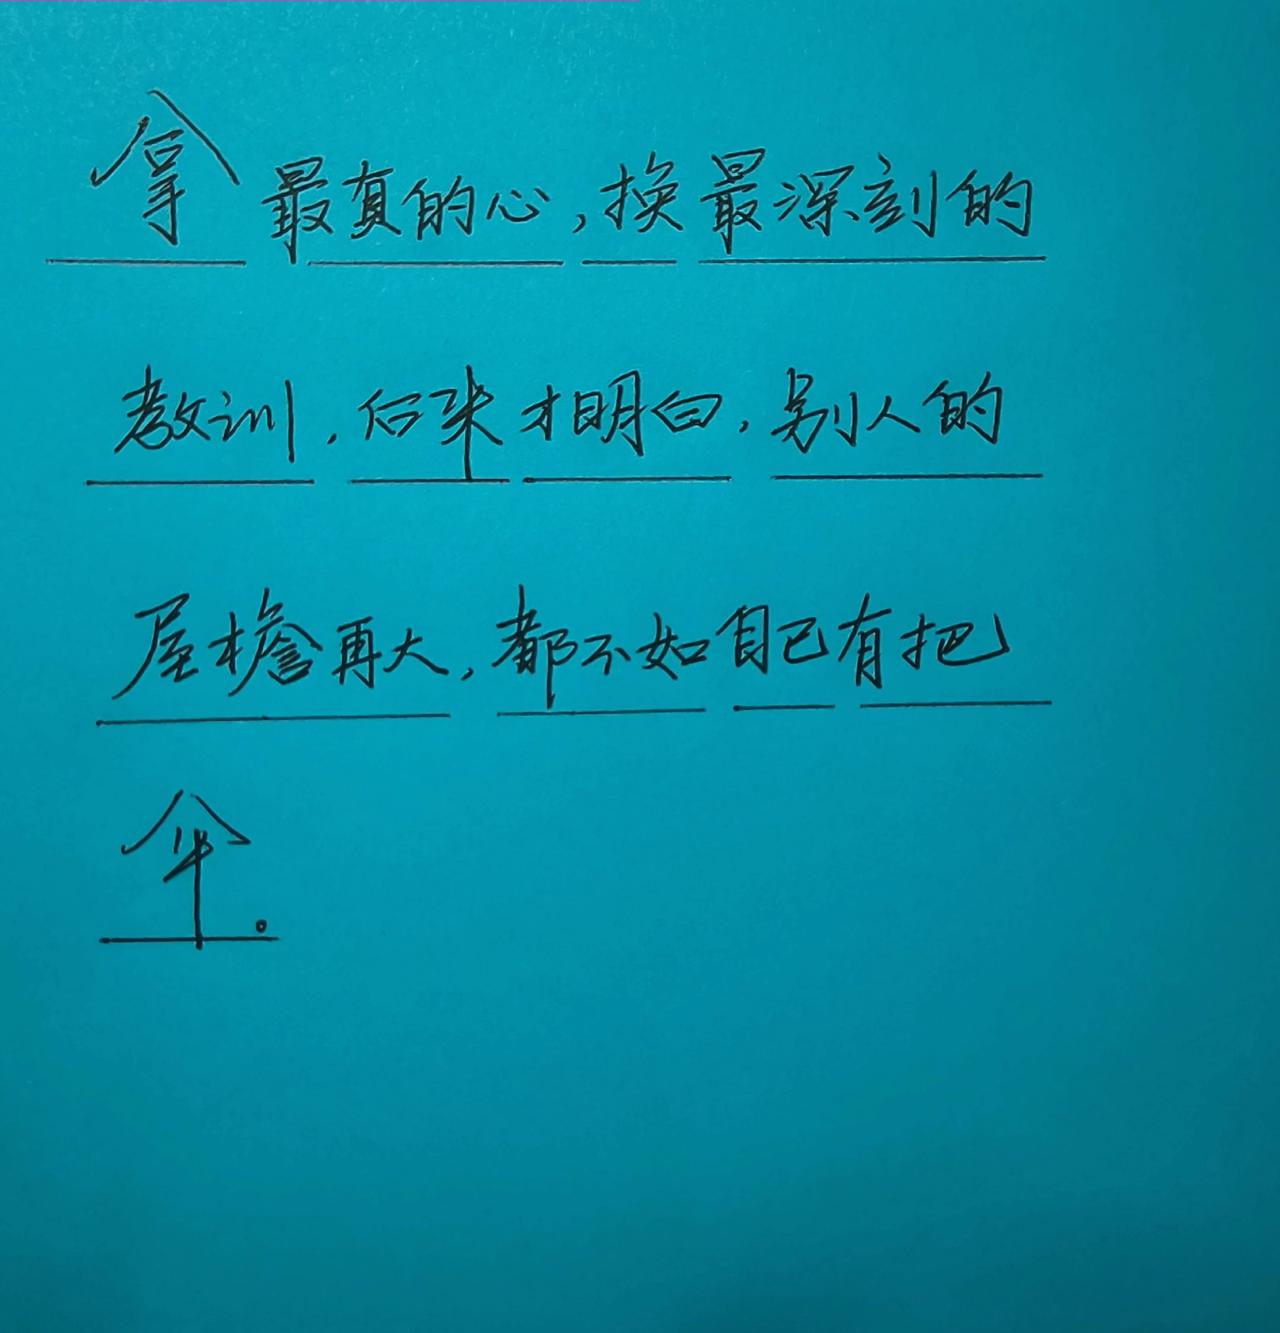 拿最真的心,换最深刻的
教训,后来才明白,别人的
屋檐再大,都不如自己有把
伞。